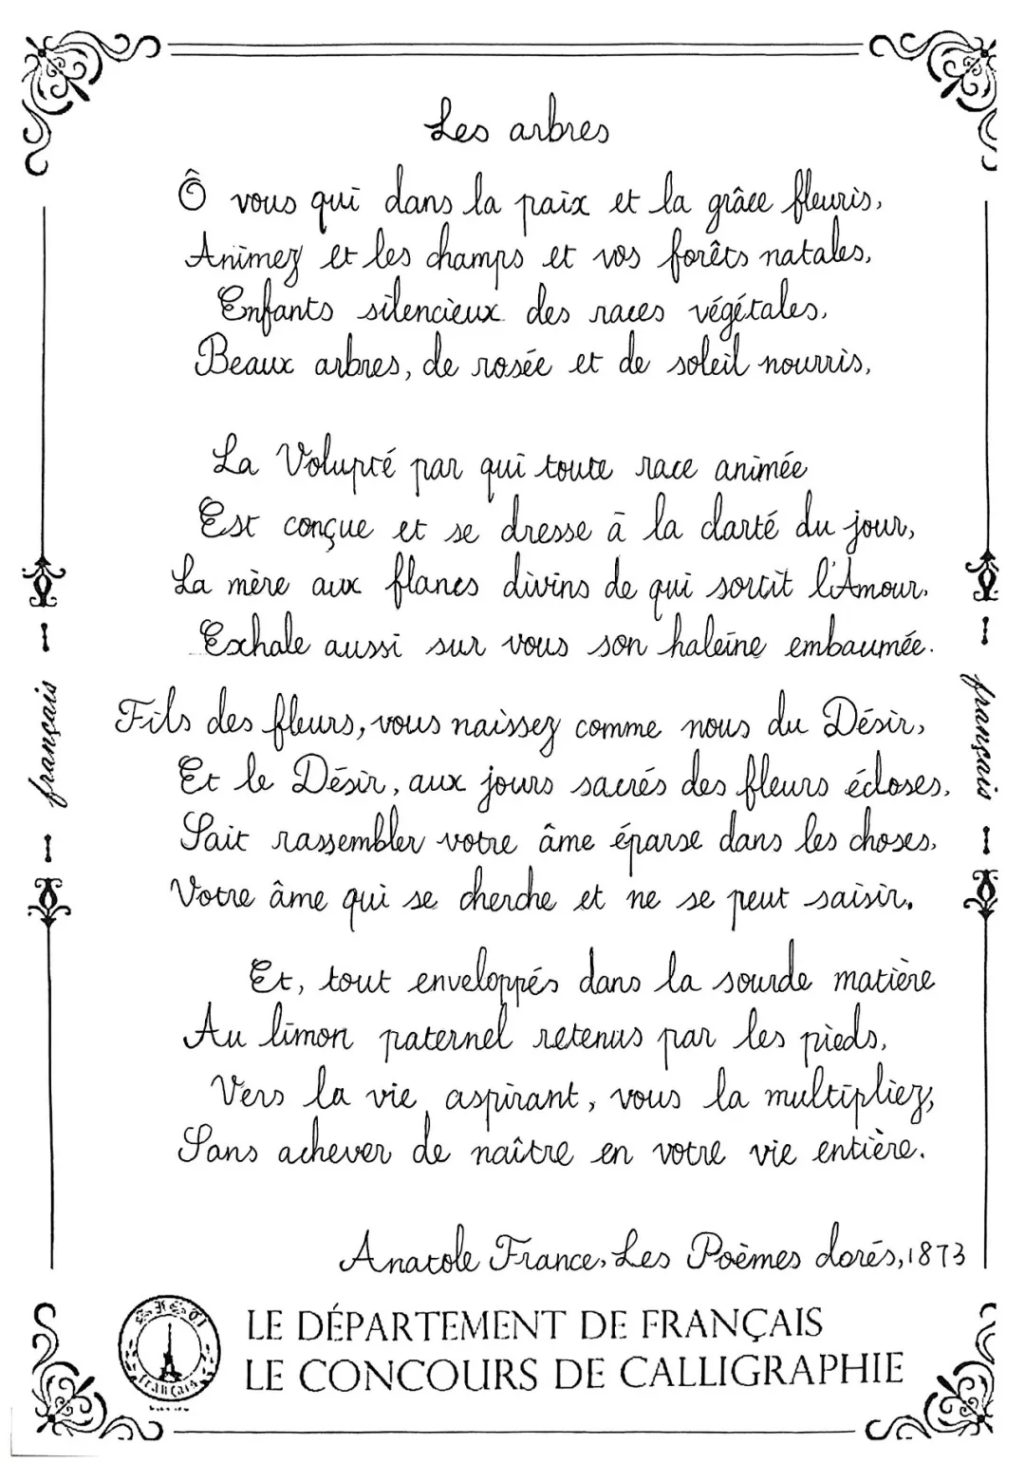 Les arbres
Ô vous qui dans la paix et la grâce fleuris,
Animez et les champs et vos forêts natales,
Enfants silencieux des races végétales,
Beaux arbres, de rosée et de soleil nourris,
La Volupté par qui toute race animée
Est conçue et se dresse à la clarté du jour,
La mère aux flancs divins de qui sortit l'Amour,
Exhale aussi sur vous son haleine embaumée.
Fils des fleurs, vous naissez comme nous du Désir,
Et le Désir, aux jours sacrés des fleurs écloses,
Sait rassembler votre âme éparse dans les choses,
Votre âme qui se cherche et ne se peut saisir.
Et, tout enveloppés dans la sourde matière
Au limon paternel retenus par les pieds,
Vers la vie aspirant, vous la multipliez,
Sans achever de naître en votre vie entière.
Anatole France, Les Poèmes dorés, 1873
français
français
français
LE DÉPARTEMENT DE FRANÇAIS
LE CONCOURS DE CALLIGRAPHIE